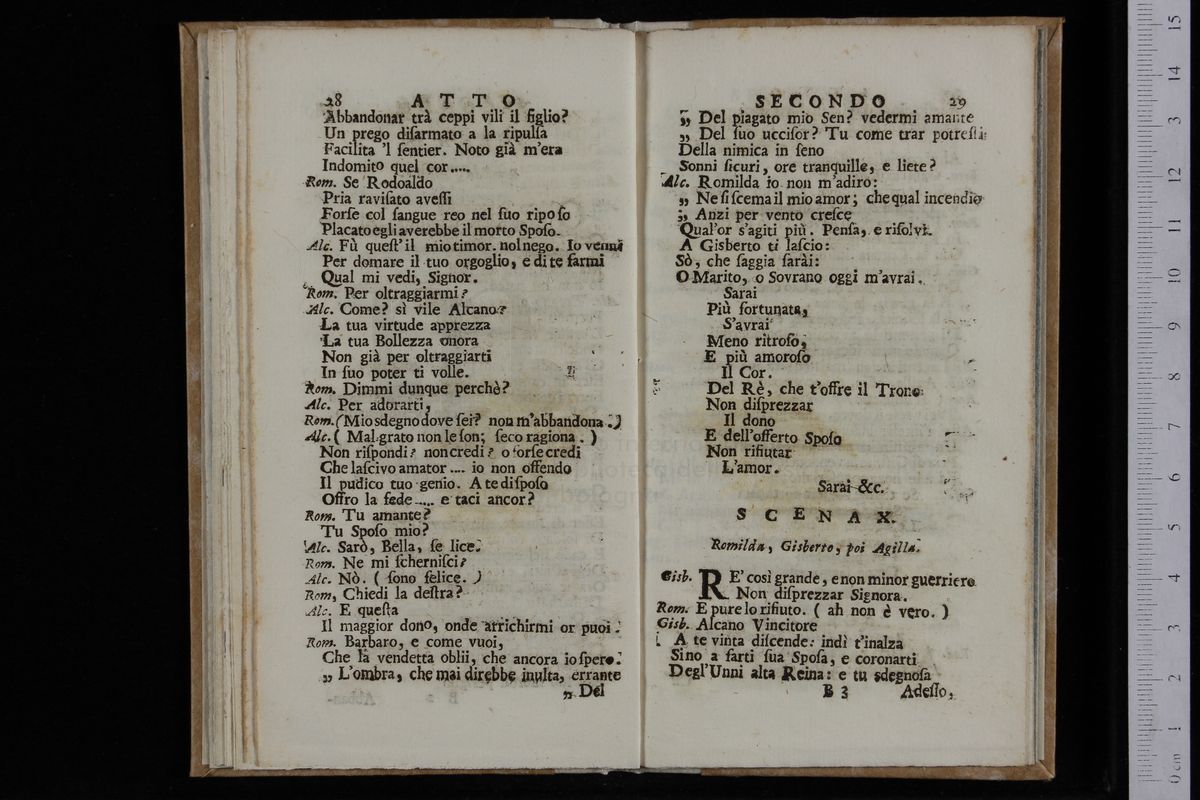 28 ATTO
Abbandonar trà ceppi vili il figlio?
Un prego diſarmato a la ripulſa
Facilita 'l ſentier. Noto già m'era
Indomito quel cor.....
Rom. Se Rodoaldo
Pria raviſato aveſſi
Forſe col ſangue reo nel ſuo ripoſo
Placato egli averebbe il morto Spoſo.
Alc. Fù queſt' il mio timor. nol nego. Io venni
Per domare il tuo orgoglio, e di te farmi
Qual mi vedi, Signor.
Rom. Per oltraggiarmi?
Alc. Come? sì vile Alcano?
La tua virtude apprezza
La tua Bollezza onora
Non già per oltraggiarti
In ſuo poter ti volle.
Rom. Dimmi dunque perchè?
Alc. Per adorarti,
Rom. (Mio sdegno dove ſei? non m'abbandona.)
Alc. ( Mal grato non le ſon; ſeco ragiona. )
Non riſpondi? non credi? o forſe credi
Che laſcivo amator.... io non offendo
Il pudico tuo genio. A te diſpoſo
Offro la fede..... e taci ancor?
Rom. Tu amante?
Tu Spoſo mio?
Alc. Sarò, Bella, ſe lice.
Rom. Ne mi ſcherniſci?
Alc. Nò. ( ſono felice. )
Rom, Chiedi la deſtra?
Alc. E queſta
Il maggior dono, onde arrichirmi or puoi.
Rom. Barbaro, e come vuoi,
Che la vendetta oblii, che ancora io ſpero.
„ L'ombra, che mai direbbe inulta, errante
„ Del
SECONDO 29
„ Del piagato mio Sen? vedermi amante
„ Del ſuo ucciſor? Tu come trar potreſti
Della nimica in ſeno
Sonni ſicuri, ore tranquille, e liete?
Alc. Romilda io non m'adiro:
„ Ne ſi ſcema il mio amor; che qual incendio
„ Anzi per vento creſce
Qual'or s'agiti più. Penſa, e riſolvi.
A Gisberto ti laſcio:
Sò, che ſaggia ſarài:
O Marito, o Sovrano oggi m'avrai.
Sarai
Più fortunata,
S'avrai
Meno ritroſo,
E più amoroſo
Il Cor.
Del Rè, che t'offre il Trono
Non diſprezzar
Il dono
E dell'offerto Spoſo
Non rifiutar
L'amor.
Sarai &c.
SCENA X.
Romilda, Gisberto, poi Agilla.
Gisb. RE' così grande, e non minor guerriero
Non diſprezzar Signora.
Rom. E pure lo rifiuto. ( ah non è vero. )
Gisb. Alcano Vincitore
A te vinta diſcende: indì t'inalza
Sino a farti ſua Spoſa, e coronarti
Degl'Unni alta Reina: e tu sdegnoſa
B 3 Adeſſo,